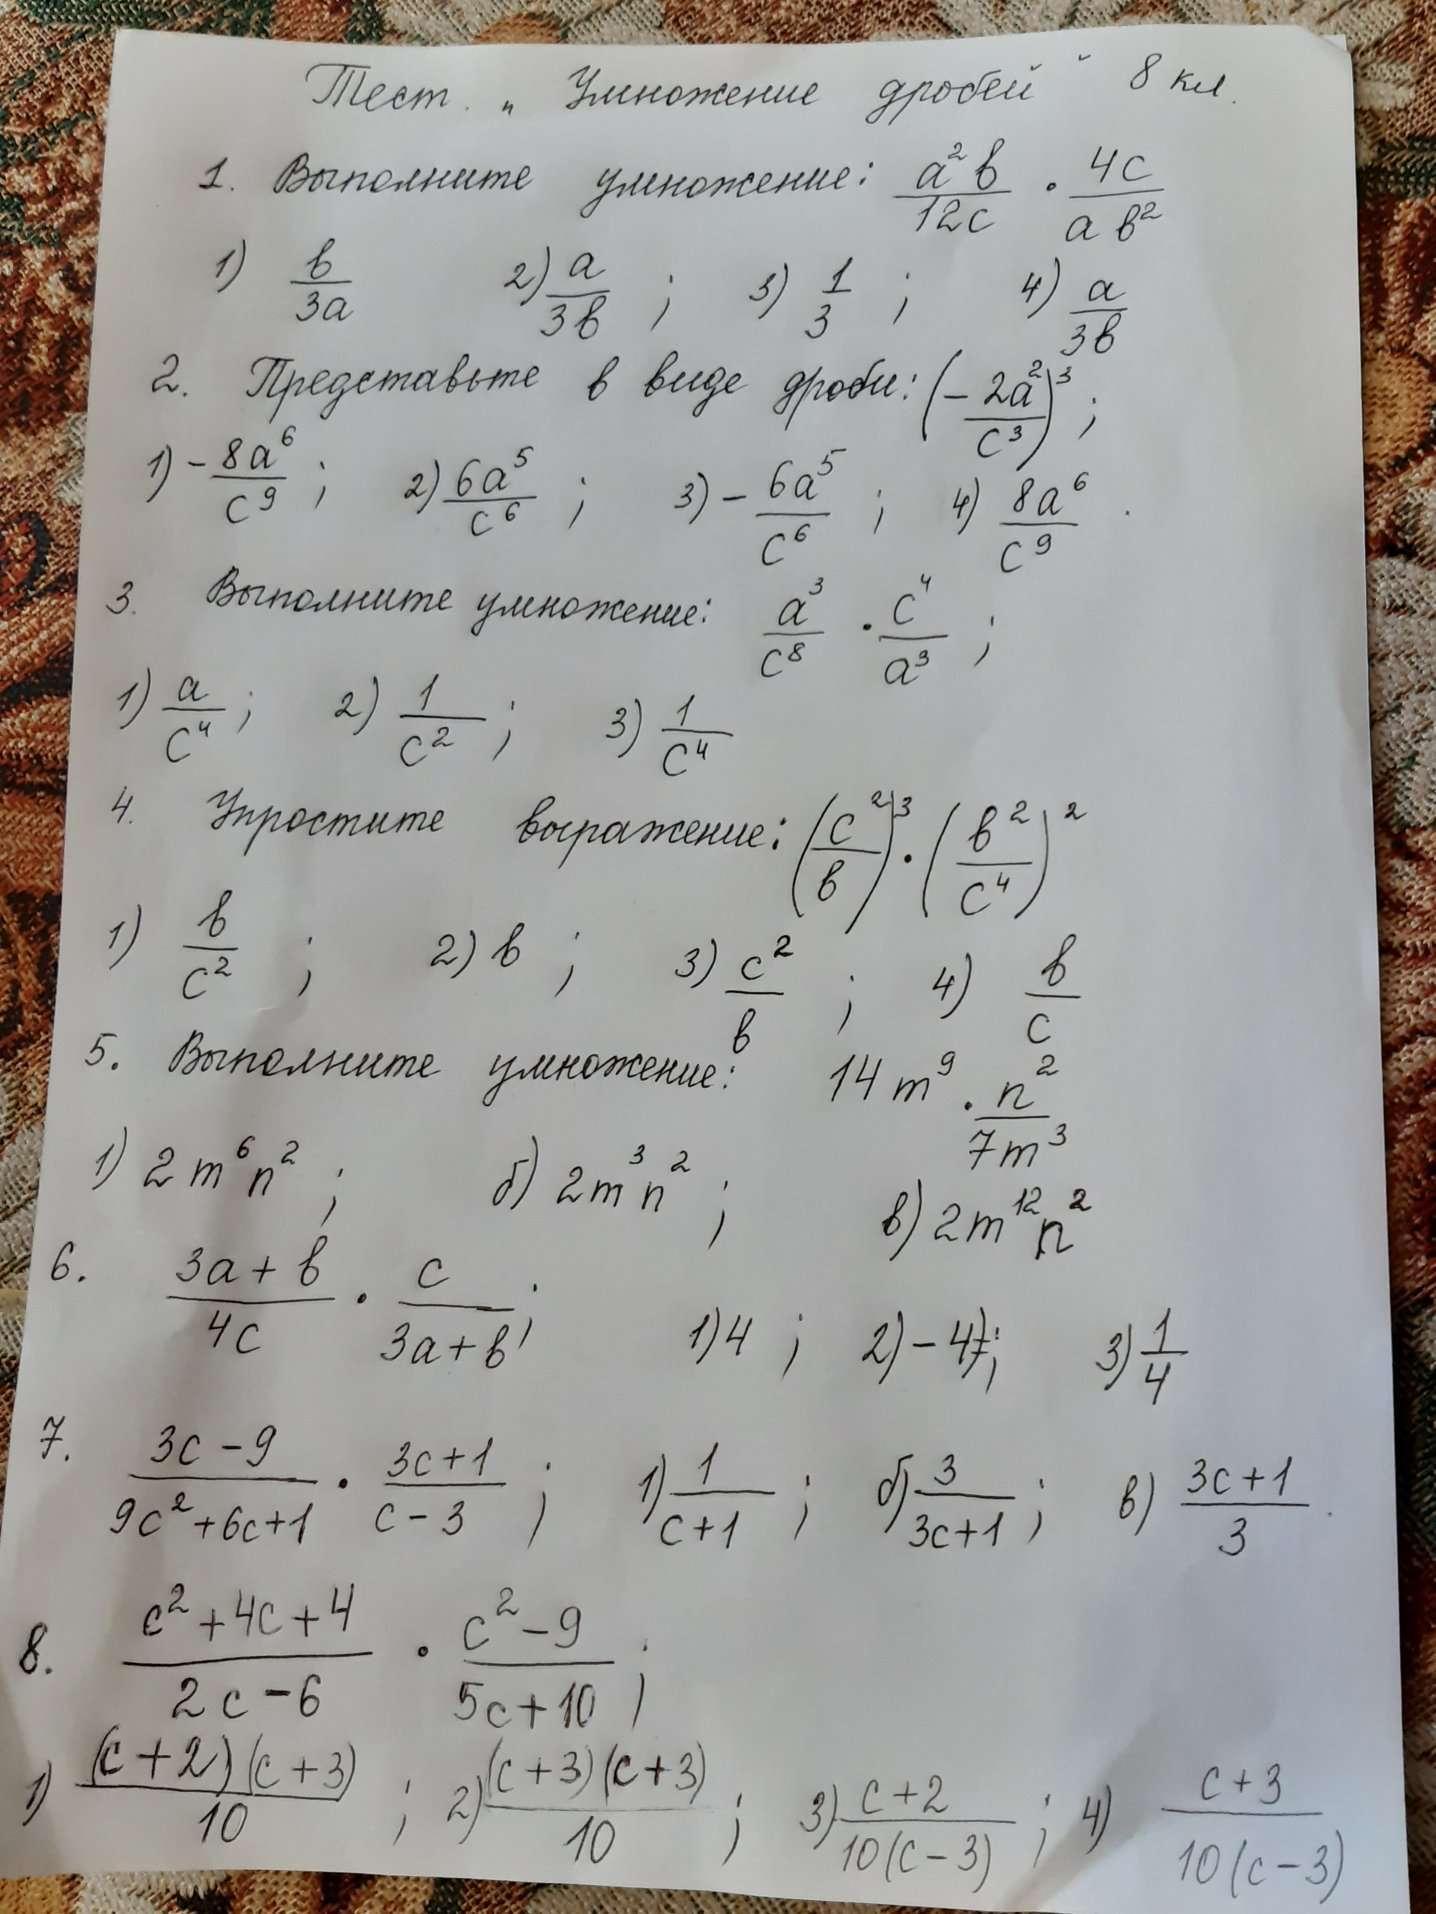 Тест. „Умножение дробей" 8 кл.
1. Выполните умножение: a²b/12c · 4c/ab²
1) b/3a 2) a/3b ; 3) 1/3 ; 4) a/3b
2. Представьте в виде дроби: (- 2a²/c³)³ ;
1) - 8a⁶/c⁹ ; 2) 6a⁵/c⁶ ; 3) - 6a⁵/c⁶ ; 4) 8a⁶/c⁹ .
3. Выполните умножение: a³/c⁸ · c⁴/a³ ;
1) a/c⁴ ; 2) 1/c² ; 3) 1/c⁴
4. Упростите выражение: (c²/b)³ · (b²/c⁴)²
1) b/c² ; 2) b ; 3) c²/b ; 4) b/c
5. Выполните умножение: 14m⁹ · n²/7m³
1) 2m⁶n² ; б) 2m³n² ; в) 2m¹²n²
6. 3a+b/4c · c/3a+b ; 1) 4 ; 2) - 4 ; 3) 1/4
7. 3c-9/9c²+6c+1 · 3c+1/c-3 ; 1) 1/c+1 ; б) 3/3c+1 ; в) 3c+1/3 .
8. c²+4c+4/2c-6 · c²-9/5c+10 ;
1) (c+2)(c+3)/10 ; 2) (c+3)(c+3)/10 ; 3) c+2/10(c-3) ; 4) c+3/10(c-3)